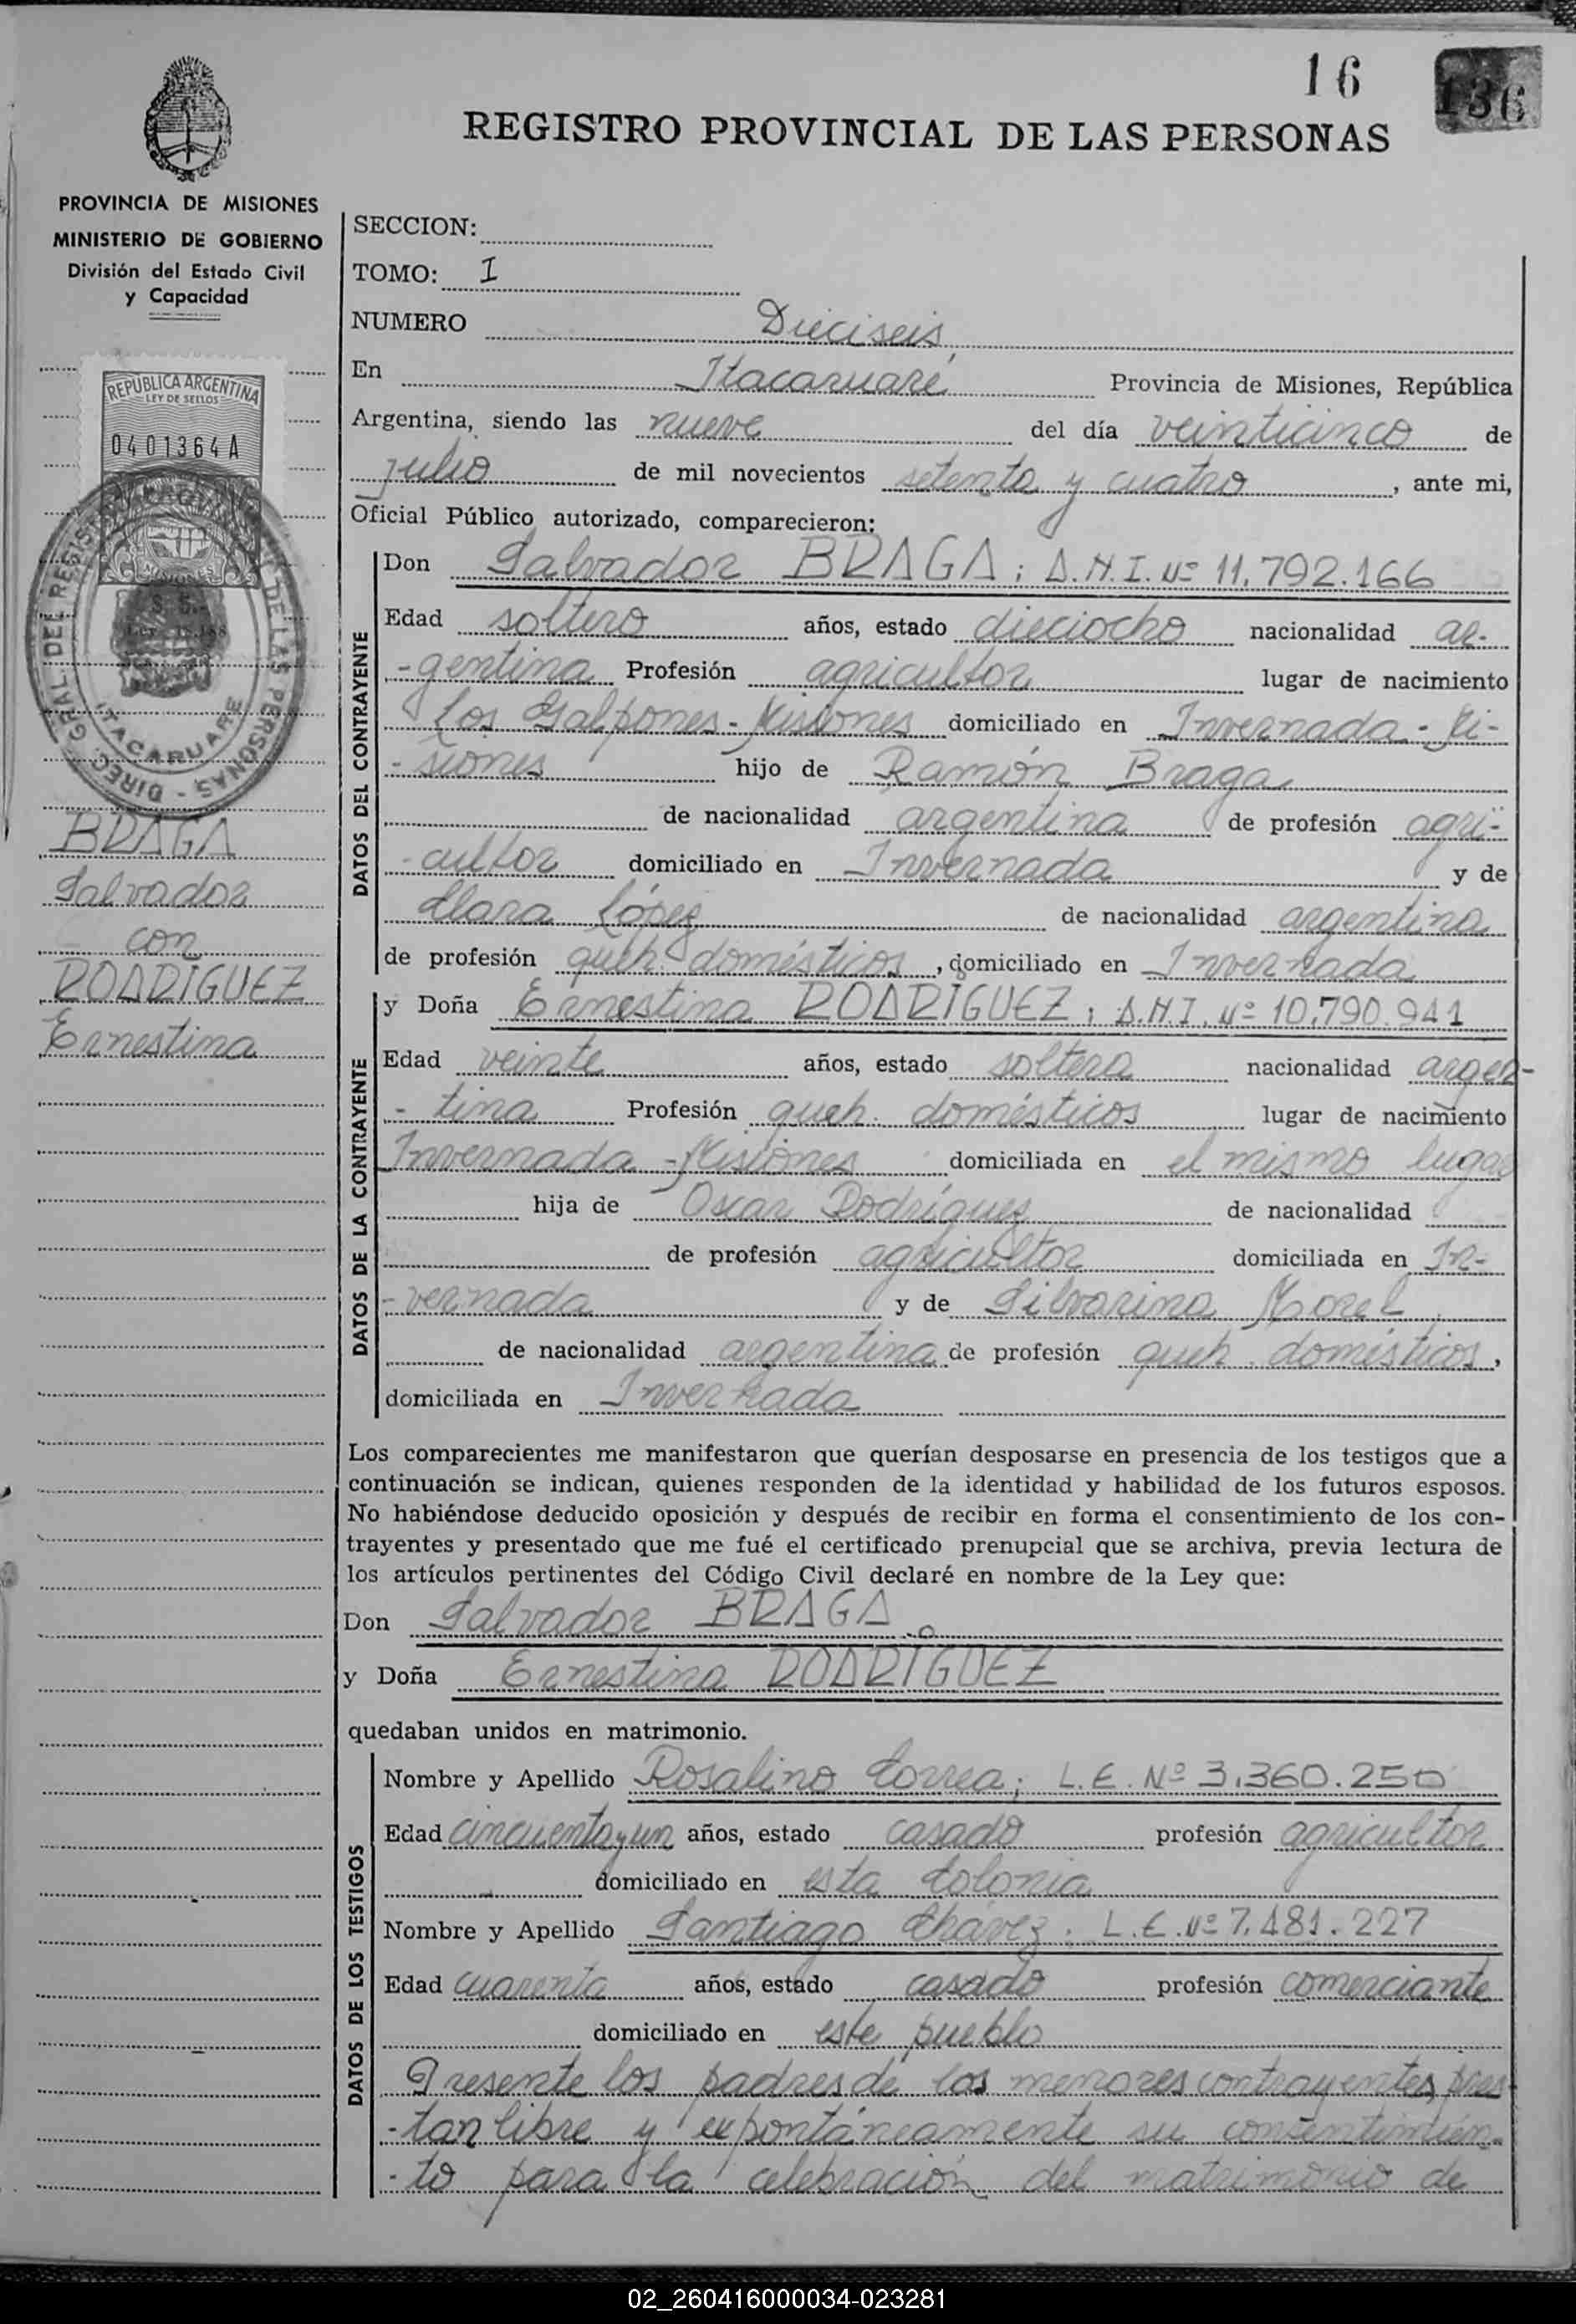 16
136
REGISTRO PROVINCIAL DE LAS PERSONAS
PROVINCIA DE MISIONES
MINISTERIO DE GOBIERNO
División del Estado Civil
y Capacidad
REPUBLICA ARGENTINA
LEY DE SELLOS
0401364A
MISIONES
DIREC. GRAL. DEL REGISTRO DE LAS PERSONAS
ITACARUARE
BRAGA
Salvador
con
RODRÍGUEZ
Ernestina
SECCION:
TOMO: I
NUMERO Dieciseis
En Itacaruaré Provincia de Misiones, República
Argentina, siendo las nueve del día veinticinco de
julio de mil novecientos setenta y cuatro, ante mi,
Oficial Público autorizado, comparecieron:
DATOS DEL CONTRAYENTE
Don Salvador BRAGA; D.N.I. Nº 11.792.166
Edad soltero años, estado dieciocho nacionalidad ar-
-gentina Profesión agricultor lugar de nacimiento
Los Galpones - Misiones domiciliado en Invernada - Mi-
-siones hijo de Ramón Braga
de nacionalidad argentina de profesión agri-
-cultor domiciliado en Invernada y de
Clara López de nacionalidad argentina
de profesión queh. domésticos, domiciliado en Invernada
DATOS DE LA CONTRAYENTE
y Doña Ernestina RODRÍGUEZ, D.N.I. Nº 10.790.941
Edad veinte años, estado soltera nacionalidad argen-
-tina Profesión queh. domésticos lugar de nacimiento
Invernada - Misiones domiciliada en el mismo lugar
hija de Oscar Rodríguez de nacionalidad
de profesión agricultor domiciliada en In-
-vernada y de Silvarina Morel
de nacionalidad argentina de profesión queh. domésticos,
domiciliada en Invernada
Los comparecientes me manifestaron que querían desposarse en presencia de los testigos que a
continuación se indican, quienes responden de la identidad y habilidad de los futuros esposos.
No habiéndose deducido oposición y después de recibir en forma el consentimiento de los con-
trayentes y presentado que me fué el certificado prenupcial que se archiva, previa lectura de
los artículos pertinentes del Código Civil declaré en nombre de la Ley que:
Don Salvador BRAGA
y Doña Ernestina RODRÍGUEZ
quedaban unidos en matrimonio.
DATOS DE LOS TESTIGOS
Nombre y Apellido Rosalino Correa; L.E. Nº 3.360.250
Edad cincuenta y un años, estado casado profesión agricultor
domiciliado en esta Colonia
Nombre y Apellido Santiago Chávez; L.E. Nº 7.481.227
Edad cuarenta años, estado casado profesión comerciante
domiciliado en este pueblo
Presente los padres de los menores contrayentes, pres-
-tan libre y expontáneamente su consentimien-
-to para la celebración del matrimonio de
02_260416000034-023281